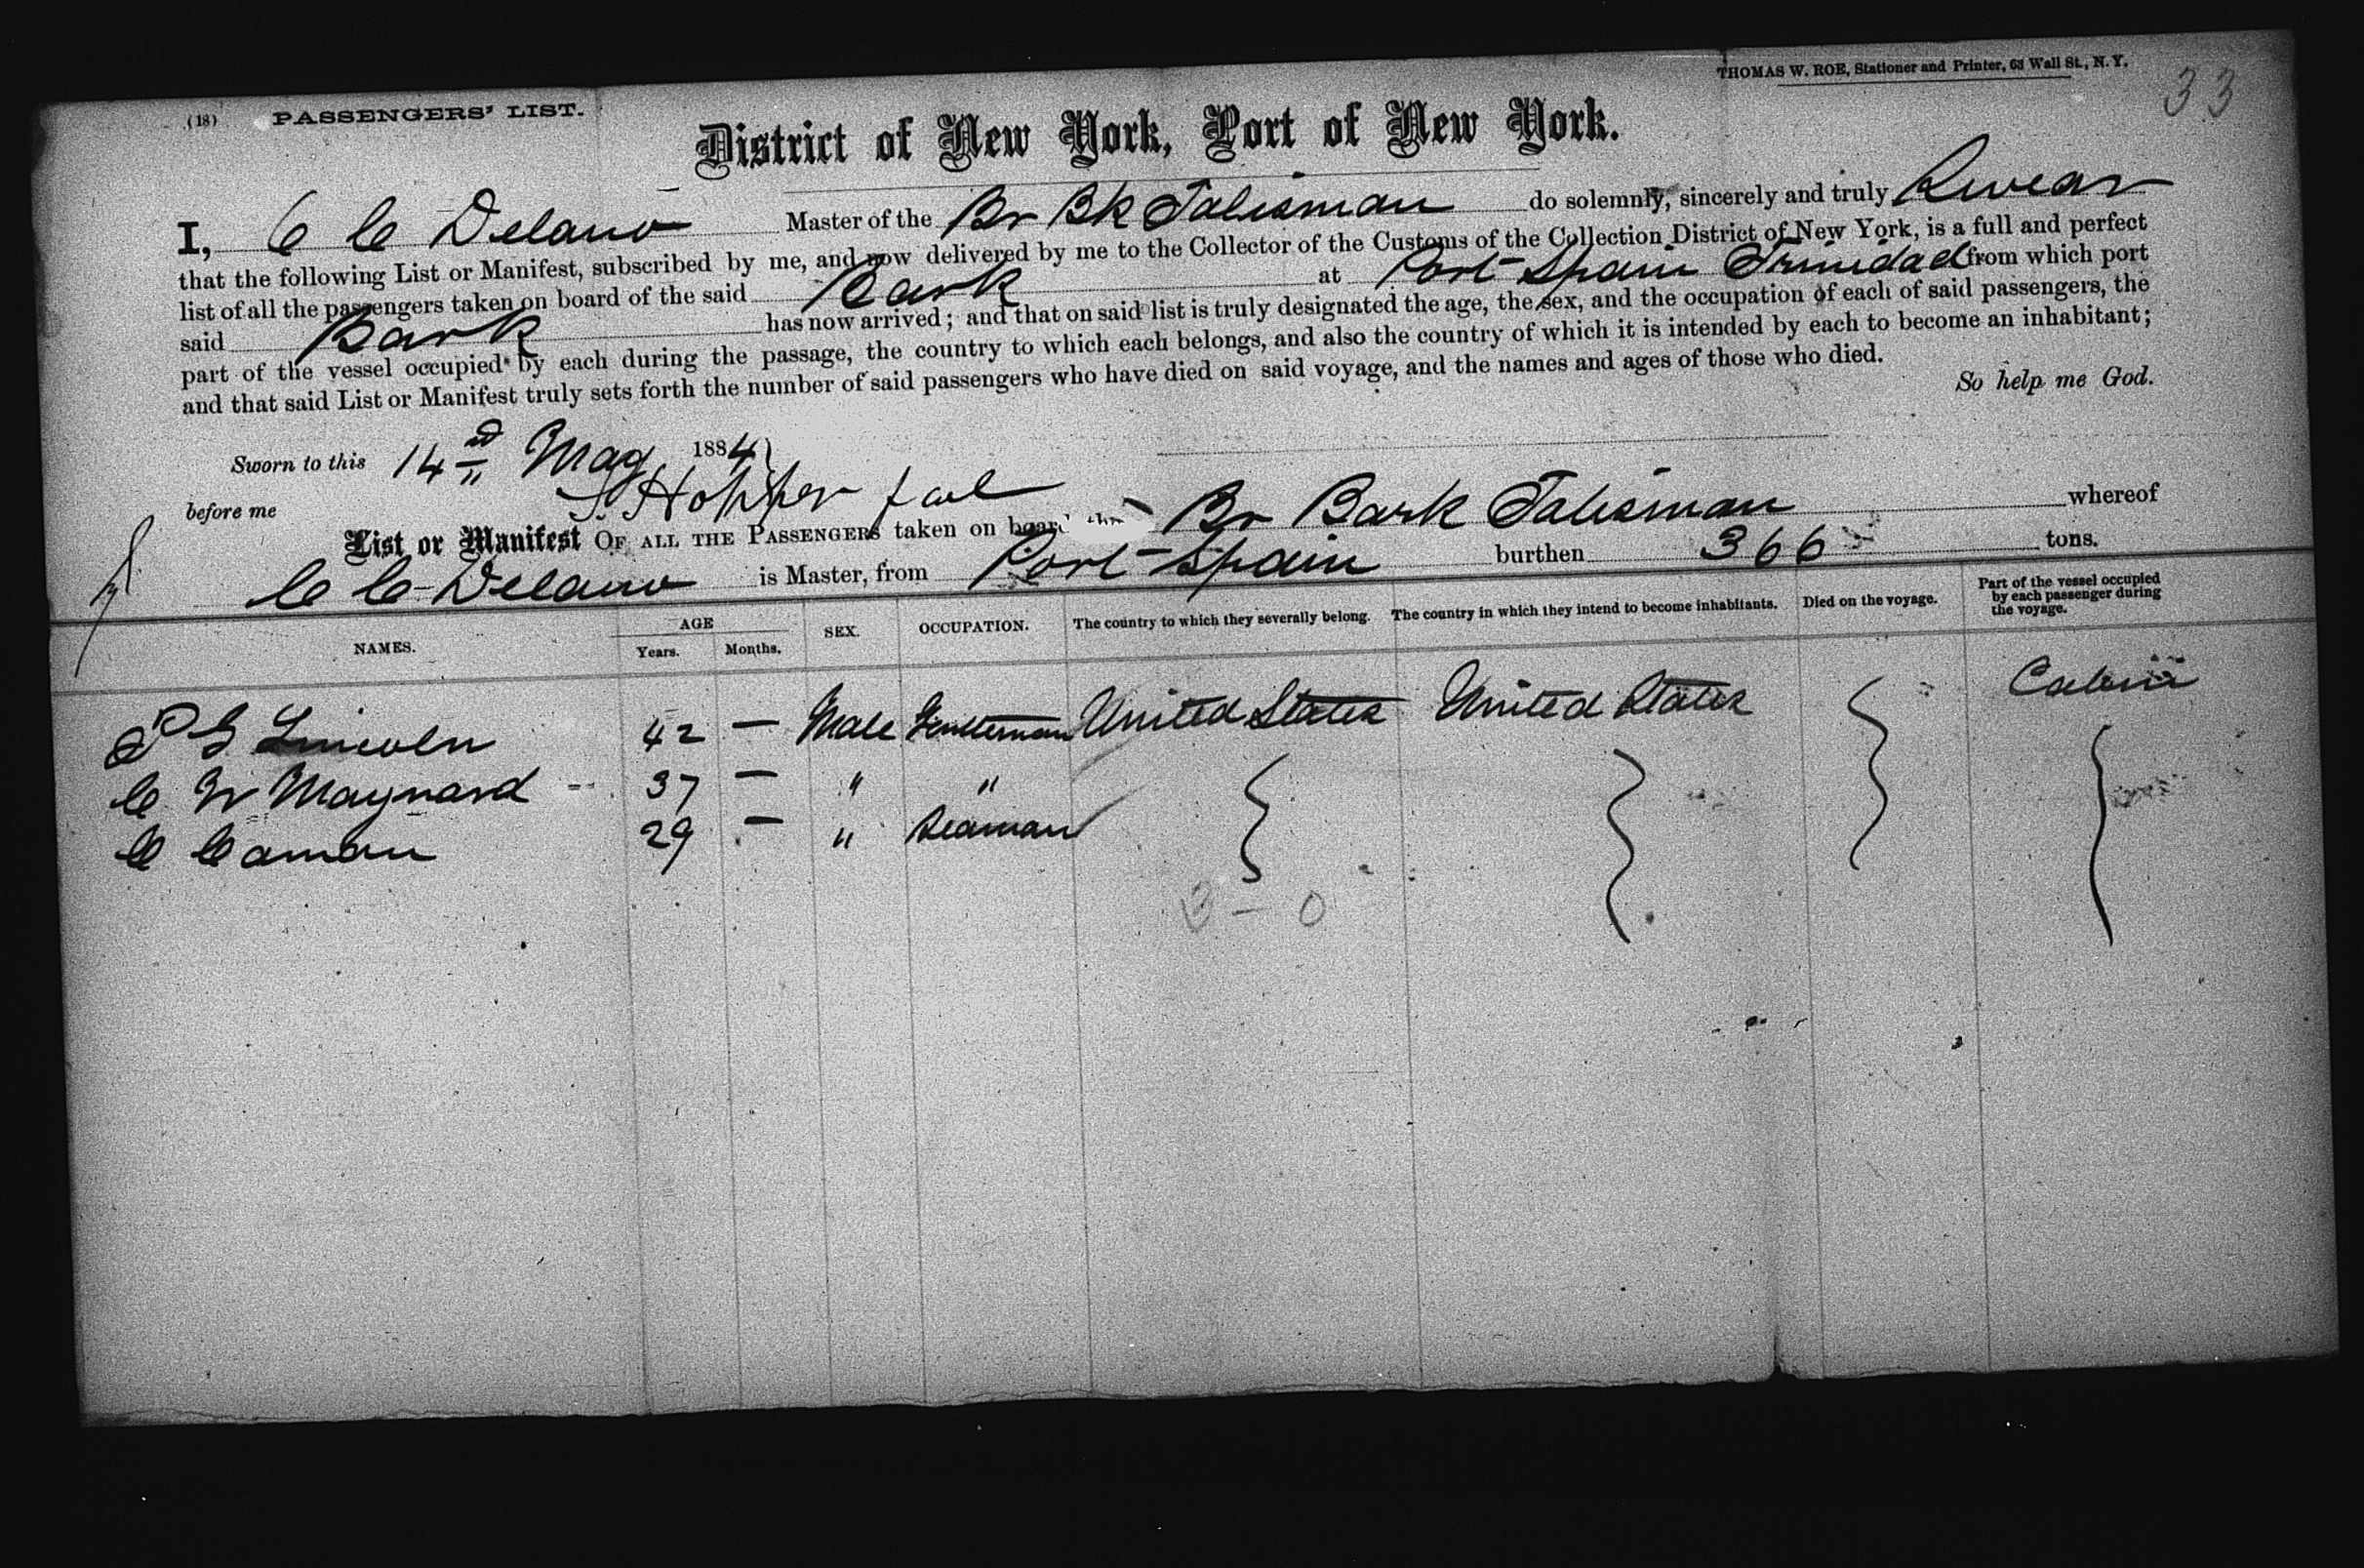 (18) PASSENGERS' LIST.
THOMAS W. ROE, Stationer and Printer, 63 Wall St., N.Y.
33
District of New York, Port of New York.
I, C C Delano Master of the Br Bk Talisman do solemnly, sincerely and truly swear
that the following List or Manifest, subscribed by me, and now delivered by me to the Collector of the Customs of the Collection District of New York, is a full and perfect
list of all the passengers taken on board of the said Bark at Port Spain Trinidad from which port
said Bark has now arrived; and that on said list is truly designated the age, the sex, and the occupation of each of said passengers, the
part of the vessel occupied by each during the passage, the country to which each belongs, and also the country of which it is intended by each to become an inhabitant;
and that said List or Manifest truly sets forth the number of said passengers who have died on said voyage, and the names and ages of those who died.
So help me God.
Sworn to this 14 May 1884
before me Hopper
List or Manifest OF ALL THE PASSENGERS taken on board the Br Bark Talisman whereof
C C Delano is Master, from Port Spain burthen 366 tons.
NAMES. AGE Years. Months. SEX. OCCUPATION. The country to which they severally belong. The country in which they intend to become inhabitants. Died on the voyage. Part of the vessel occupied by each passenger during the voyage.
P G Lincoln 42 — Male Gentleman United States United States Cabin
C W Maynard 37 — " "
C Caman 29 — " Seaman
3 — 0